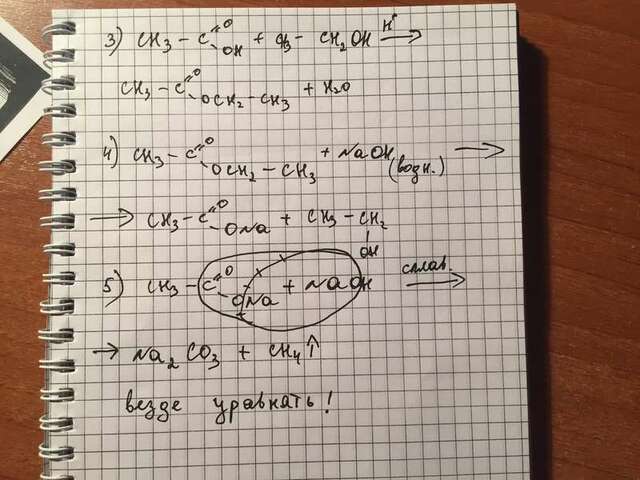 3) CH3 - C =O - OH + CH3 - CH2OH H+ →
CH3 - C =O - OCH2 - CH3 + H2O
4) CH3 - C =O - OCH2 - CH3 + NaOH (водн.) →
→ CH3 - C =O - ONa + CH3 - CH2 OH
5) CH3 - C =O - ONa + NaOH сплав. →
→ Na2CO3 + CH4↑
везде уравнять!